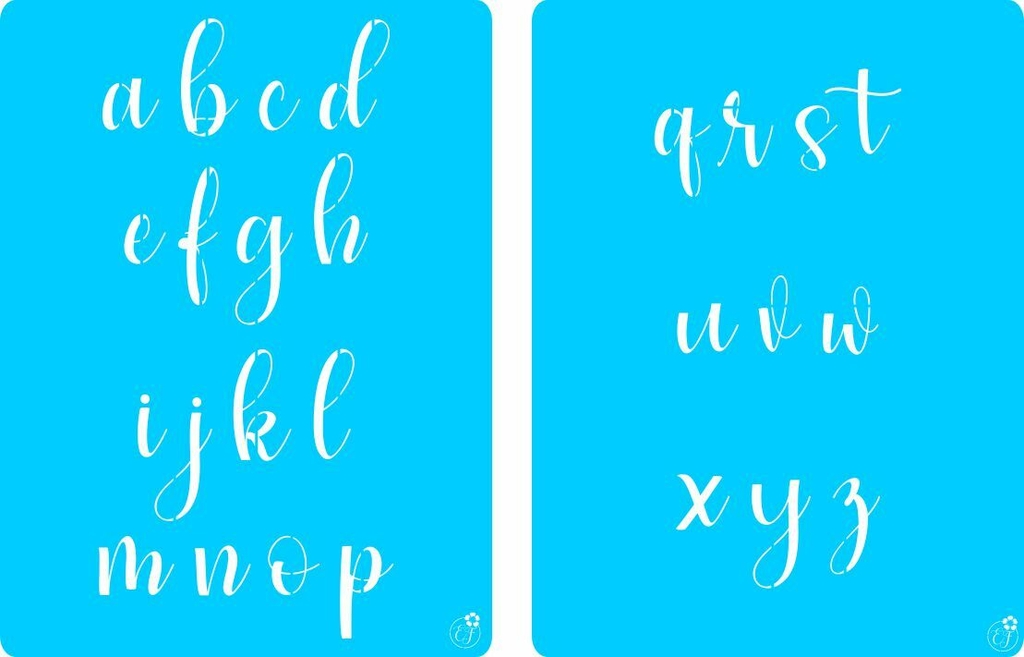 a b c d
e f g h
i j k l
m n o p
EF
q r s t
u v w
x y z
EF